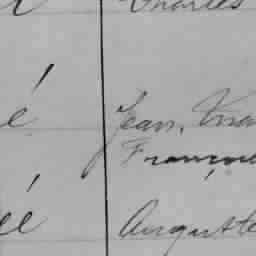 Charles
é Jean,
François
éé Auguste